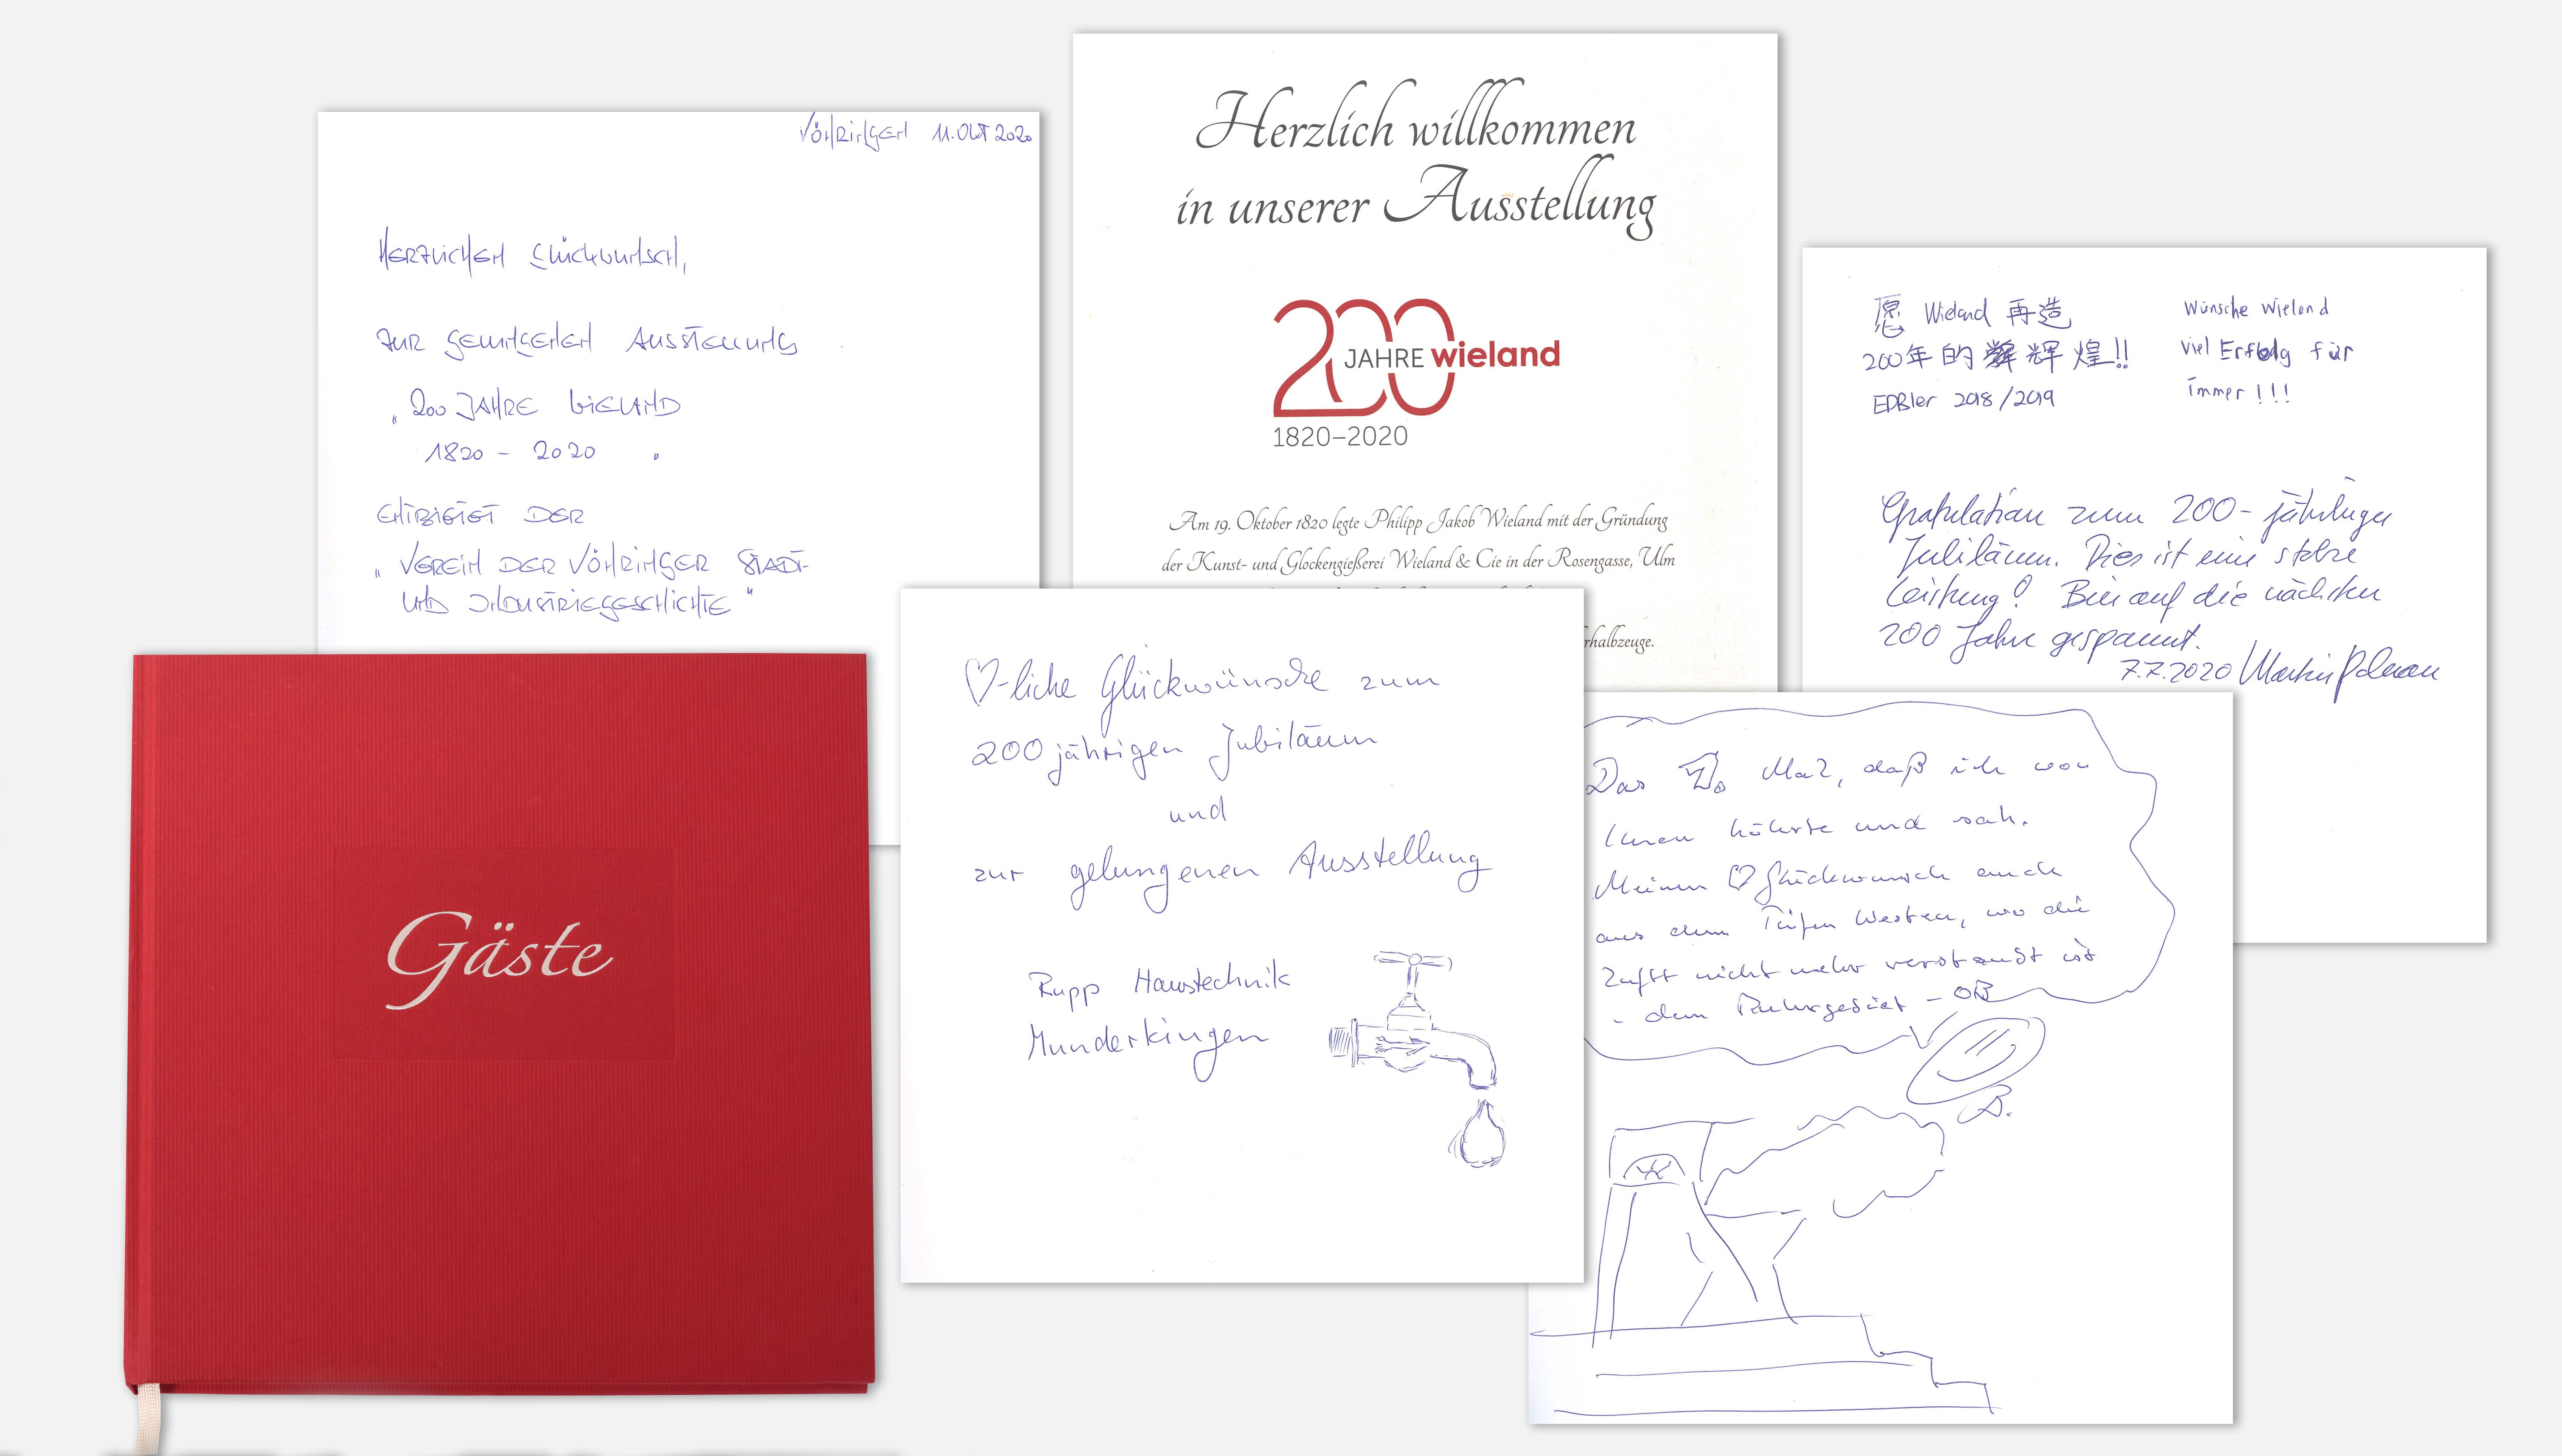 Vöhringen 11. Okt 2020
Herzlichen Glückwunsch,
zur gelungenen Ausstellung
„200 Jahre Wieland
1820 - 2020 "
entbietet der
„Verein der Vöhringer Stadt-
und Industriegeschichte"
Herzlich willkommen
in unserer Ausstellung
200 JAHRE wieland
1820–2020
Am 19. Oktober 1820 legte Philipp Jakob Wieland mit der Gründung
der Kunst- und Glockengießerei Wieland & Cie in der Rosengasse, Ulm
rhalbzeuge.
愿 Wieland 再造
200年的辉煌!!
EDBler 2018/2019
Wünsche Wieland
viel Erfolg für
immer!!!
Gratulation zum 200-jährigen
Jubiläum. Dies ist eine stolze
Leistung! Bin auf die nächsten
200 Jahre gespannt.
7.7.2020 Martin
Gäste
♡-liche Glückwünsche zum
200 jährigen Jubiläum
und
zur gelungenen Ausstellung
Rupp Haustechnik
Munderkingen
Das Mal, daß ich von
Ihnen höhrte und sah.
Meinen ♡ Glückwunsch auch
aus dem Tiefen Westen, wo die
Luft nicht mehr verstaubt ist
- dem Ruhrgebiet - OB
B.
W